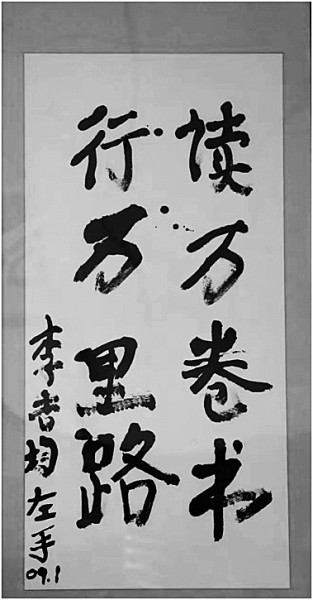 读万卷书
行万里路
李吉均左手
09.1